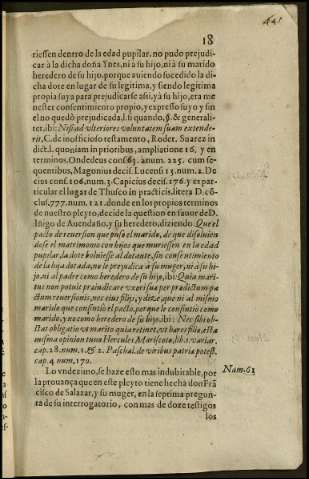 18
riessen dentro de la edad pupilar, no pudo prejudi-
car à la dicha doña Ynes, ni à su hijo, ni à su marido
heredero de su hijo, porque auiendo sucedido la di-
cha dote en lugar de su legitima, y siendo legitima
propia suya para prejudicarse assi, y à su hijo, era me
nester consentimiento propio, y expresso suyo y sin
el no quedò prejudicada, l. si quando, §. & generali-
ter, ibi: Nisi ad vlteriores voluntatem suam extende-
rit, C. de inofficioso testamento, Roder. Suarez in
dict. l. quoniam in prioribus, ampliatione 16, y en
terminos, Ondedeus cons. 63. à num. 225. cum se-
quentibus, Magonius decif. Lucens 13. num. 2. De
cius cons. 106. num. 3. Capicius decis. 176. y ex par-
ticular el lugar de Thusco in practicis, litera D. cō-
clus. 777. num. 121. donde en los propios terminos
de nuestro pleyto, decide la question en fauor de D.
Iñigo de Auendaño, y su heredero, diziendo. Que el
pacto de reuersion que puso el marido, de que dissoluien
dose el matrimonio con hijos que muriessen en la edad
pupilar, la dote boluiesse al dotante, sin consentimiento
de la hija dotada, no le prejudica à su muger, ni à su hi-
jo, ni al padre como heredero de su hijo, ibi: Quia mari-
tus non potuit praiudicare vxori sua per praedictum pa-
ctum reuersionis, nec eius filijs, y dize que ni al mismo
marido que consintio el pacto, porque le consintio como
marido, y no como heredero de su hijo, ibi: Nec sibi ob-
stat obligatio vt marito quia retinet, vt hares filij, esta
misma opinion tuuo Hercules Mariscota, lib. 1. variar.
cap. 28. num. 1. & 2. Paschal. de viribus patria potest.
cap. 4. num. 179.
Lo vndezimo, se haze esto mas indubitable, por
la prouança que en este pleyto tiene hecha don Frā
cisco de Salazar, y su muger, en la septima pregun-
ta de su interrogatorio, con mas de doze testigos
los
Num. 63